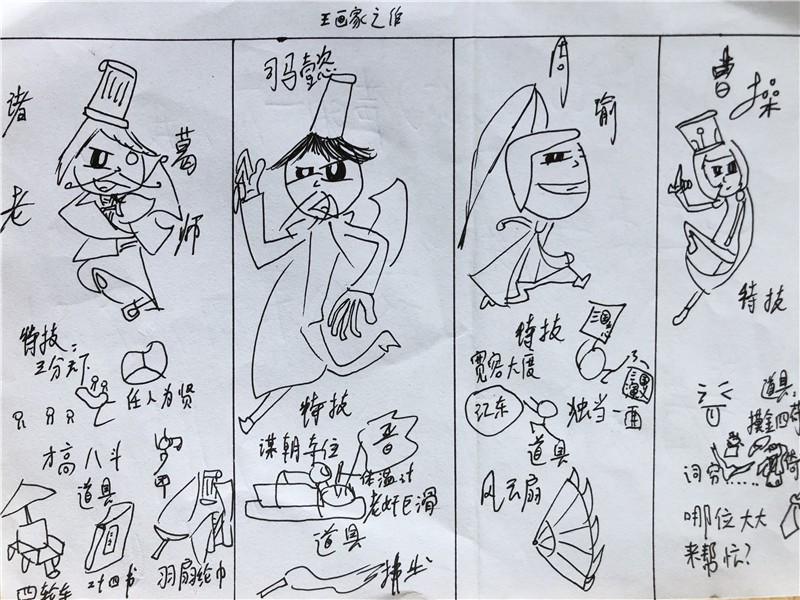 王画家之作
诸葛
老师
特技：
三分天下
任人为贤
才高八斗
道具
四轮车
二十四书
羽扇纶巾
司马懿
特技
谋朝夺位
晋
体温计
老奸巨滑
道具
拂尘
周瑜
特技
宽容大度
三国志
三国演义
江东
独当一面
道具
风云扇
曹操
特技
道具：
摸金
哪位大大
来帮忙？